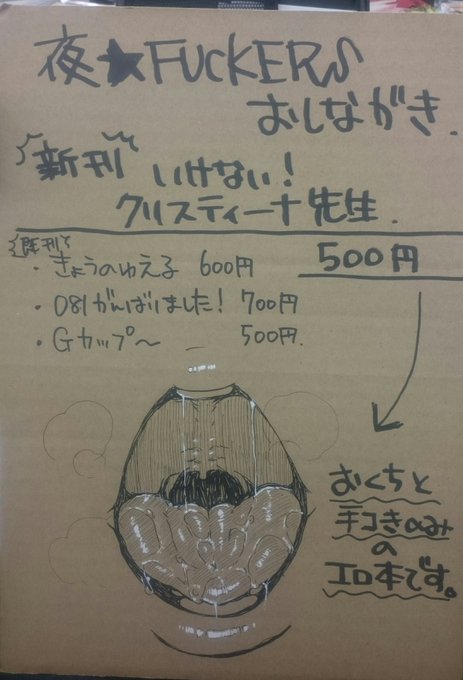 夜★FUCKERS
おしながき.
新刊 いけない!
クリスティーナ先生.
500円
既刊
・きょうのゆえる 600円
・081がんばりました! 700円
・Gカップ〜 500円.
おくちと
手コきのみ
の
エロ本です。